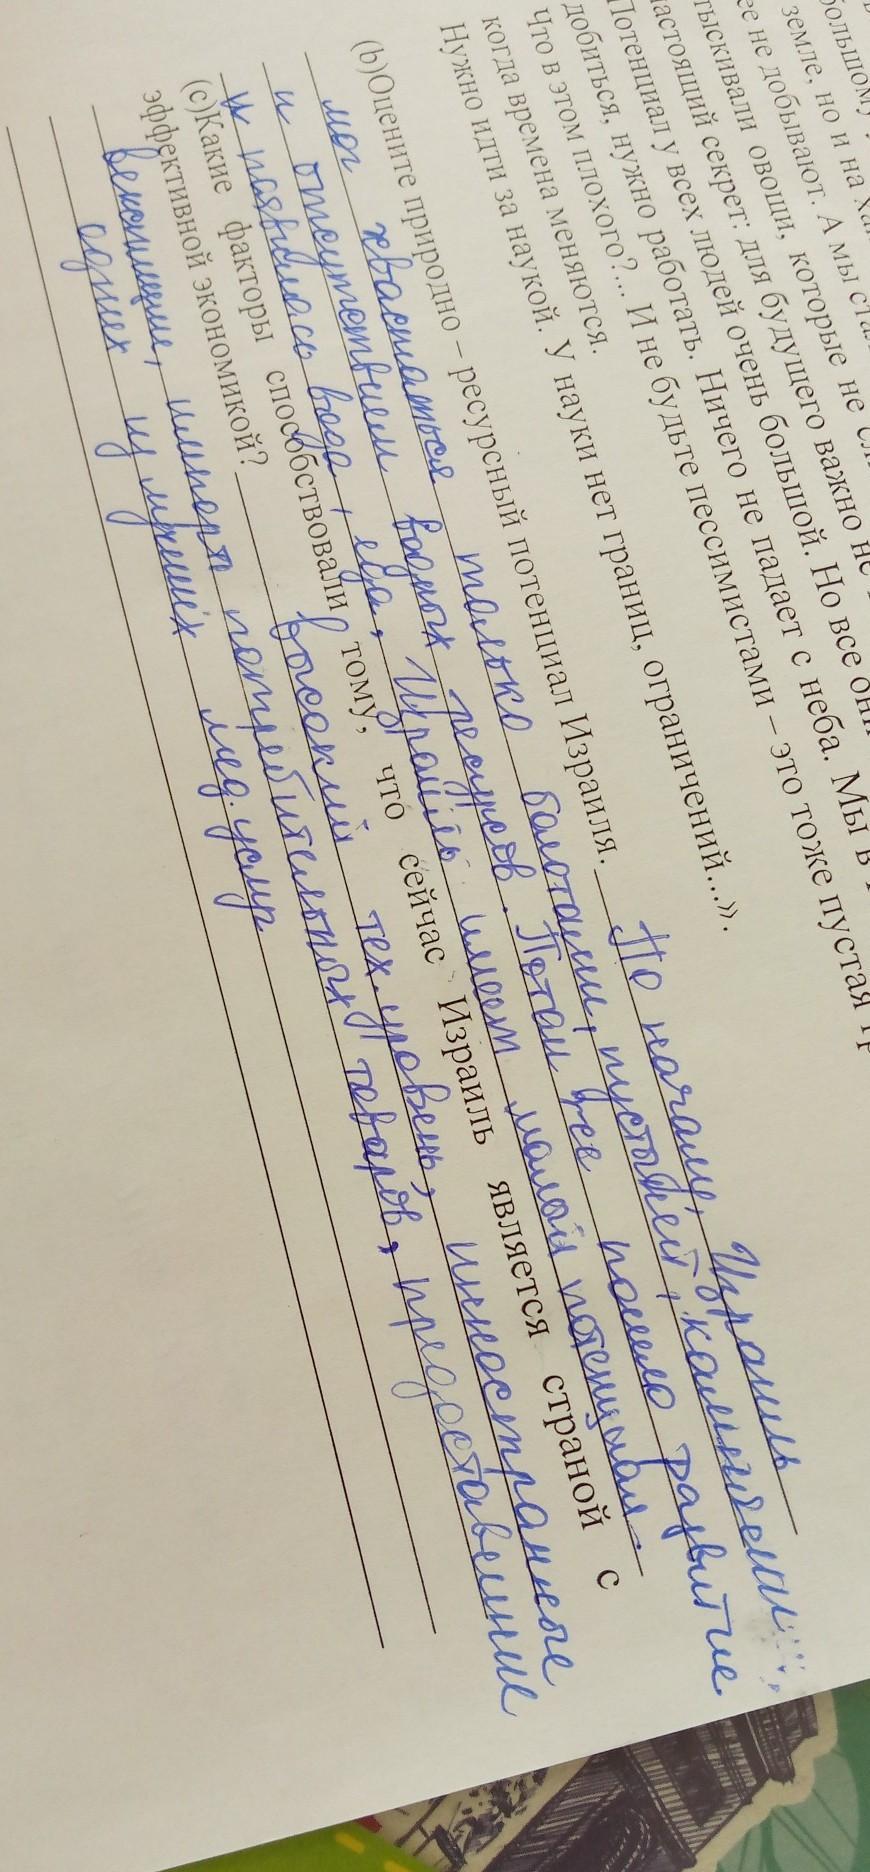 большому
земле, но и на
ее не добывают. А мы
тыскивали овощи, которые не
настоящий секрет: для будущего важно не
Потенциал у всех людей очень большой. Но все
добиться, нужно работать. Ничего не падает с неба. Мы в
Что в этом плохого?... И не будьте пессимистами – это тоже пустая
когда времена меняются.
Нужно идти за наукой. У науки нет границ, ограничений...».
(b)Оцените природно – ресурсный потенциал Израиля. По началу, Израиль
мог хвастаться только болотами, пустыней, камнями,
и отсутствием водных ресурсов. Потом уже пошло развитие
и появилась вода, еда, Израиль имеет малой потенциал.
(c)Какие факторы способствовали тому, что сейчас Израиль является страной с
эффективной экономикой? высокий тех. уровень, иностранные
вложения, импорт потребительных товаров, предоставление
одних из лучших мед. услуг